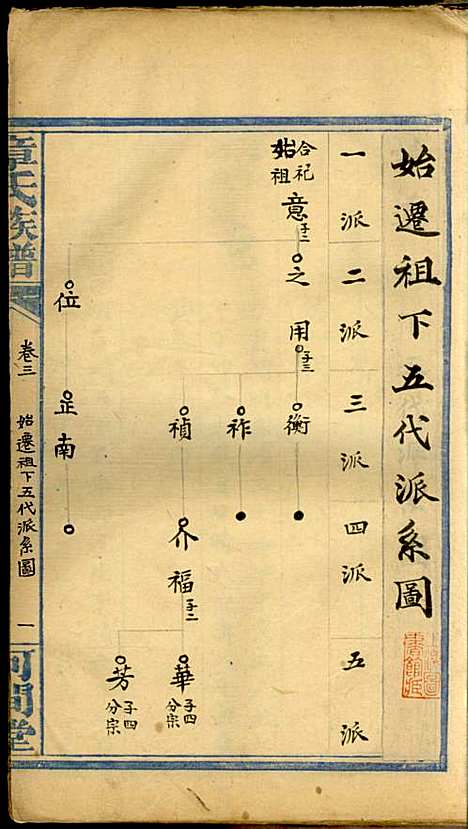 始遷祖下五代派系圖
一派
二派
三派
四派
五派
合祀
始祖
意 子二
之用 子三
衡
祚
禎
介福 子二
華 子四
分宗
芳 子四
分宗
位
正南
章氏族譜
卷三
始遷祖下五代派系圖
一
河間堂